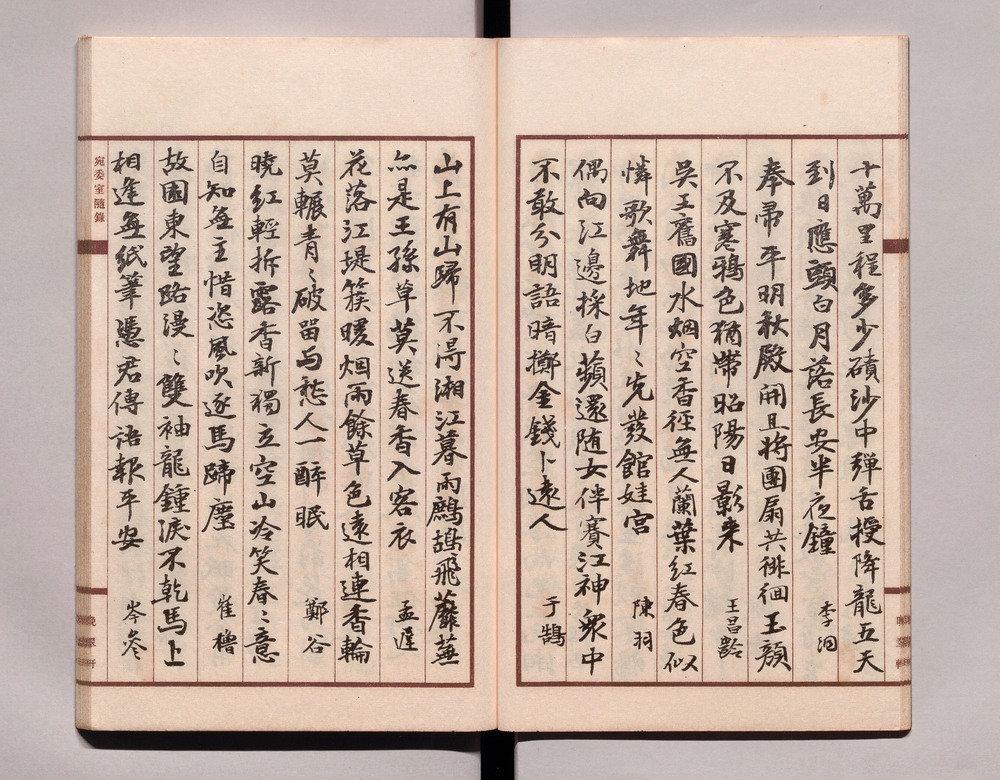 十萬里程多少磧沙中彈舌授降龍五天
到日應頭白月落長安半夜鐘 李洞
奉帚平明秋殿開且將團扇共徘徊玉顏
不及寒鴉色猶帶昭陽日影来 王昌齡
吳王舊國水烟空香徑無人蘭葉紅春色似
憐歌舞地年〻先發館娃宮 陳羽
偶向江邊採白蘋還随女伴賽江神衆中
不敢分明語暗擲金錢卜遠人 于鵠
山上有山歸不得湘江暮雨鷓鴣飛蘼蕪
亦是王孫草莫送春香入客衣 孟遲
花落江堤簇暖烟雨餘草色遠相連香輪
莫輾青〻破留與愁人一醉眠 鄭谷
曉紅輕拆露香新獨立空山冷笑春〻意
自知無主惜恣風吹逐馬蹄塵 崔櫓
故園東望路漫〻雙袖龍鍾淚不乾馬上
相逢無紙筆憑君傳語報平安 岑參
宛委室隨錄